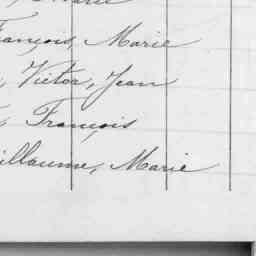 François, Marie
, Victor, Jean
, François
uillaume, Marie